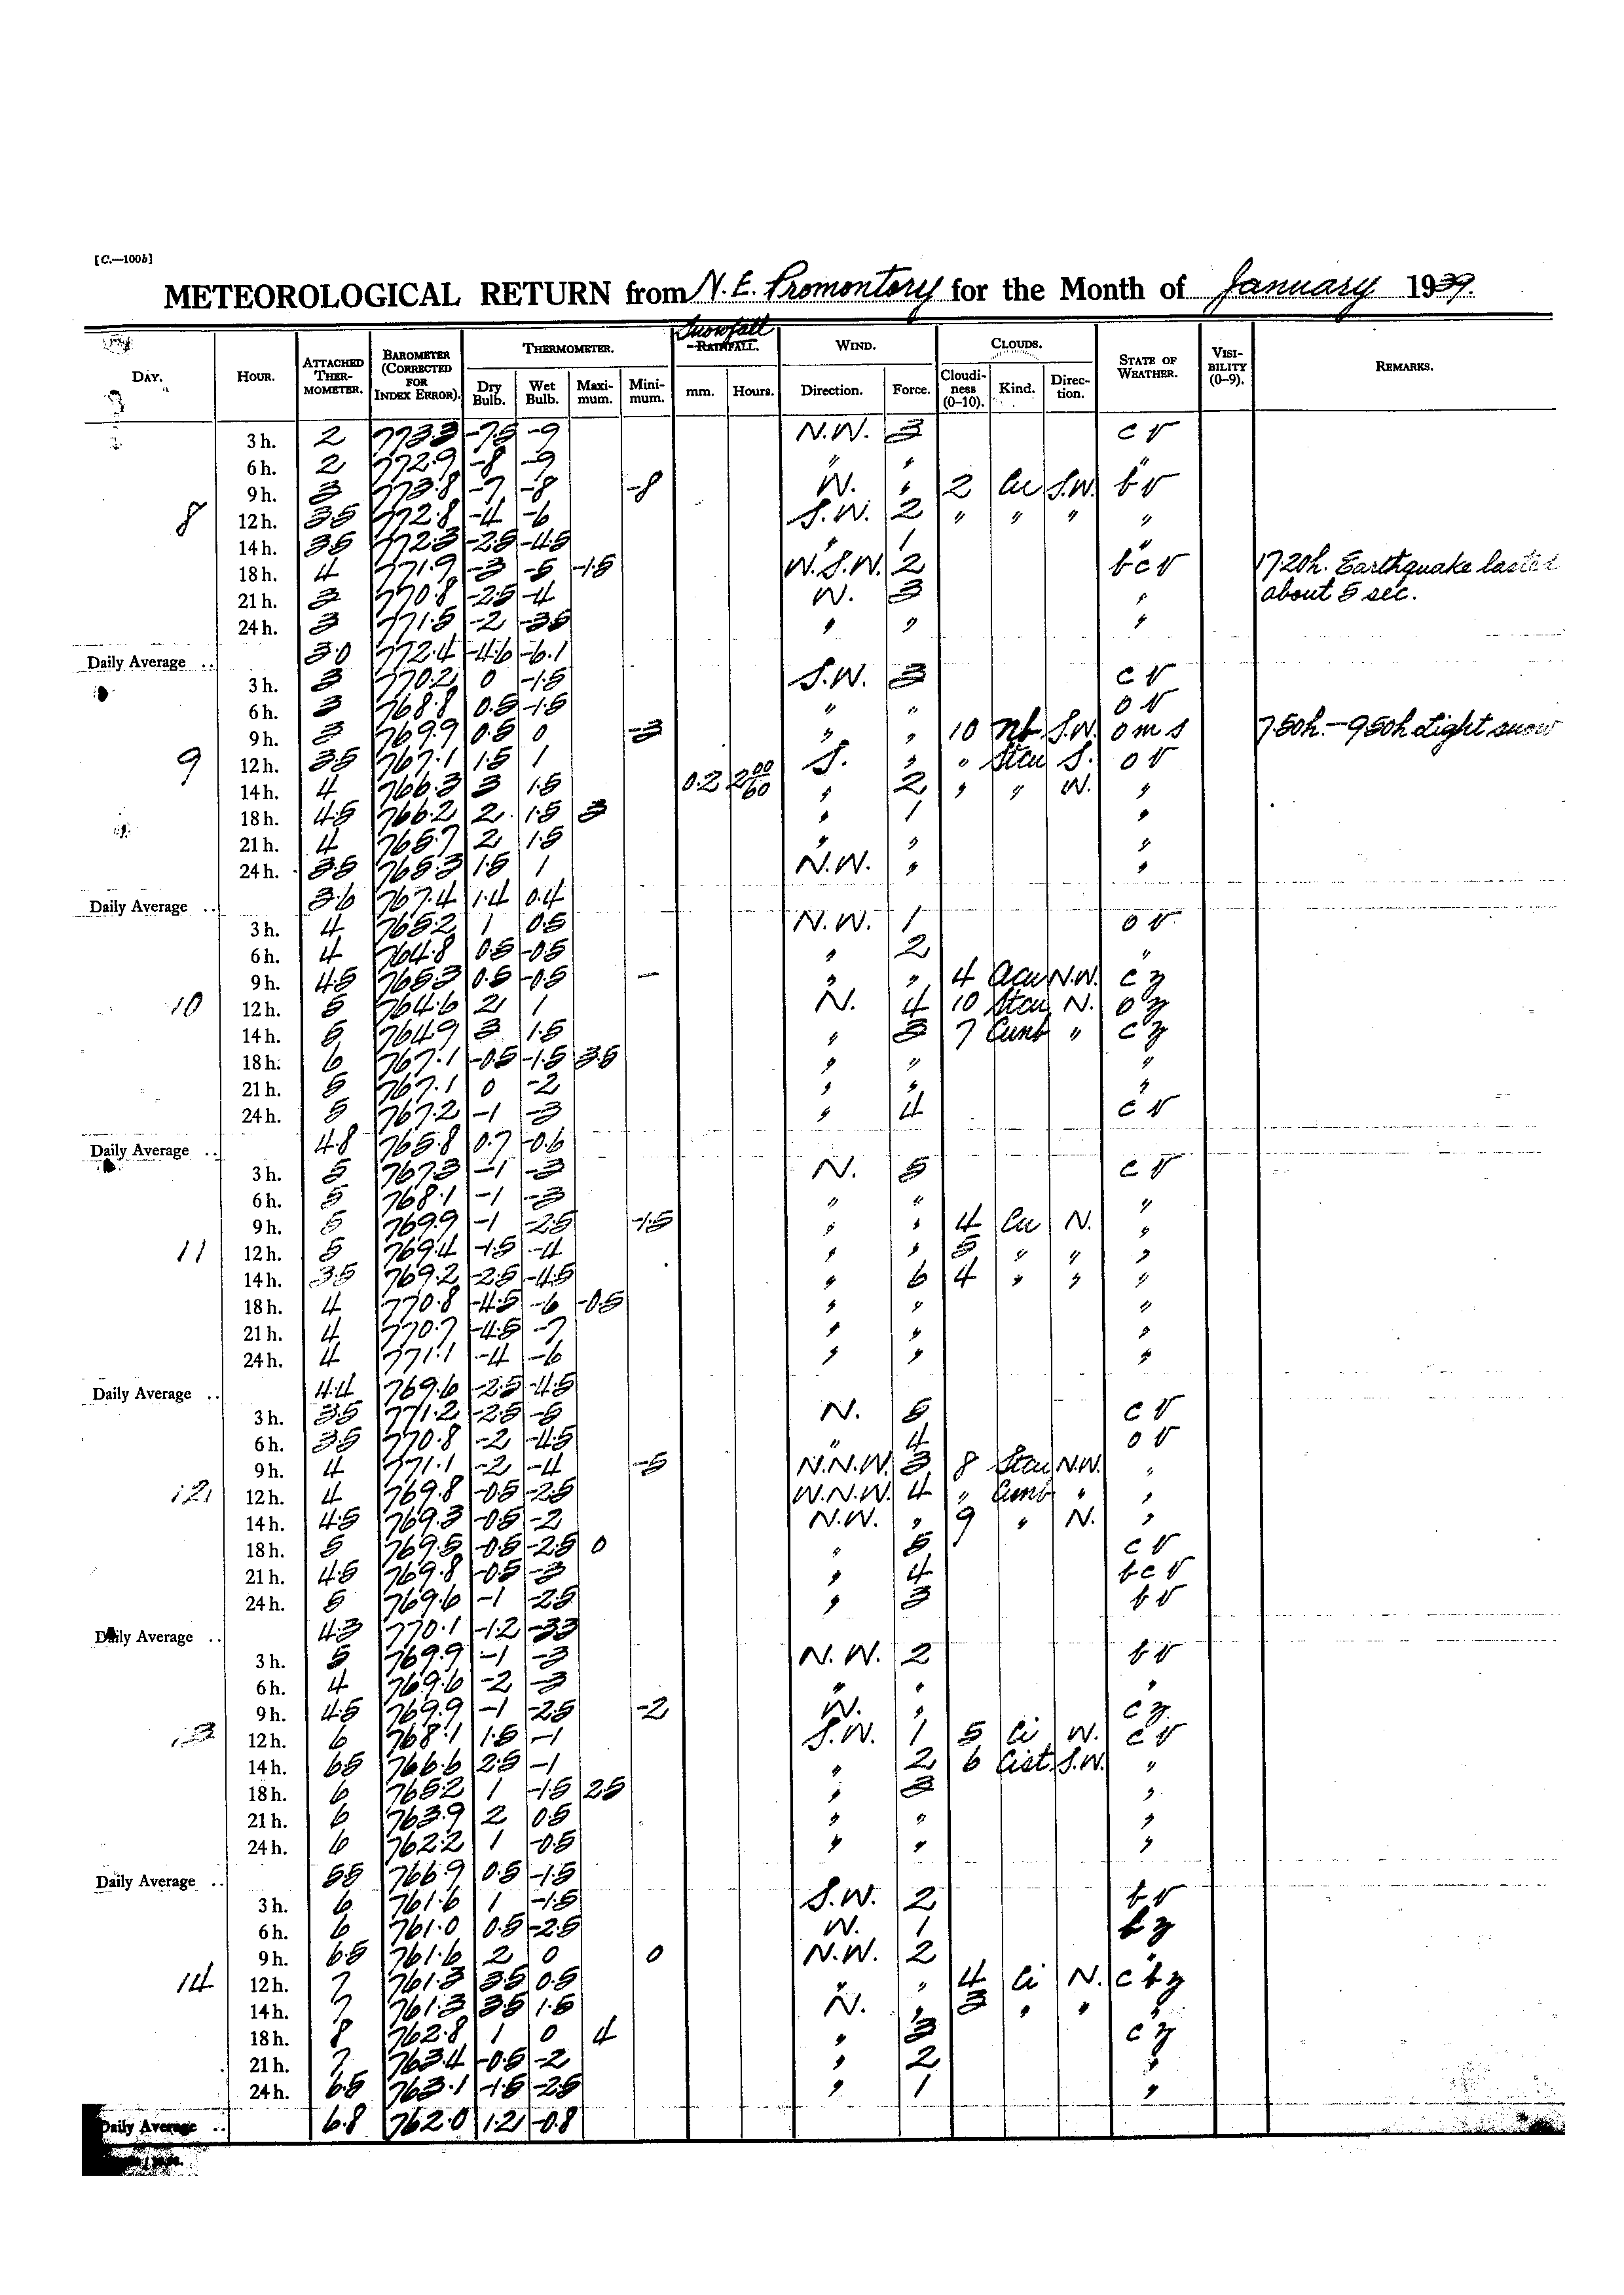 [C.—100b]
METEOROLOGICAL RETURN from N. E. Promontory for the Month of January 1939.
Snowfall
DAY. HOUR. ATTACHED THERMOMETER. BAROMETER (CORRECTED FOR INDEX ERROR). THERMOMETER. Dry Bulb. Wet Bulb. Maximum. Minimum. RAINFALL. mm. Hours. WIND. Direction. Force. CLOUDS. Cloudiness (0–10). Kind. Direction. STATE OF WEATHER. VISIBILITY (0–9). REMARKS.
3 h. 2 773.3 -7.5 -9 N.W. 3 c v
6 h. 2 772.9 -8 -9 " " "
9 h. 3 773.8 -7 -8 -8 W. " 2 Cu S.W. b v
8 12 h. 3.5 772.8 -4 -6 S.W. 2 " " " "
14 h. 3.5 772.3 -2.5 -4.5 " 1 "
18 h. 4 771.9 -3 -5 -1.5 W.S.W. 2 b c v 17.20h. Earthquake lasted
21 h. 3 770.8 -2.5 -4 W. 3 " about 5 sec.
24 h. 3 771.5 -2 -3.5 " " "
Daily Average .. 3.0 772.4 -4.6 -6.1
3 h. 3 770.2 0 -1.5 S.W. 3 c v
6 h. 3 768.8 0.5 -1.5 " " o v
9 h. 3 769.9 0.5 0 -3 " " 10 Nb S.W. o m s 7.50h. – 9.50h Light snow
9 12 h. 3.5 767.1 1.5 1 S. " " Stcu S. o v
14 h. 4 766.3 3 1.5 0.2 2 00/60 " 2 " " W. "
18 h. 4.5 766.2 2 1.5 3 " 1 "
21 h. 4 765.7 2 1.5 " " "
24 h. 3.5 765.3 1.5 1 N.W. " "
Daily Average .. 3.6 767.4 1.4 0.4
3 h. 4 765.2 1 0.5 N.W. 1 o v
6 h. 4 764.8 0.5 -0.5 " 2 "
9 h. 4.5 765.3 0.5 -0.5 — " " 4 Acu N.W. c z
10 12 h. 5 764.6 2 1 N. 4 10 Stcu N. o z
14 h. 5 764.9 3 1.5 " 3 7 Cunb " c z
18 h. 6 767.1 -0.5 -1.5 3.5 " " "
21 h. 5 767.1 0 -2 " " "
24 h. 5 767.2 -1 -3 " 4 c v
Daily Average .. 4.8 765.8 0.7 -0.6
3 h. 5 767.3 -1 -3 N. 5 c v
6 h. 5 768.1 -1 -3 " " "
9 h. 5 769.9 -1 -2.5 -1.5 " " 4 Cu N. "
11 12 h. 5 769.4 -1.5 -4 " " 5 " " "
14 h. 3.5 769.2 -2.5 -4.5 " 6 4 " " "
18 h. 4 770.8 -4.5 -6 -0.5 " " "
21 h. 4 770.7 -4.5 -7 " " "
24 h. 4 771.1 -4 -6 " " "
Daily Average .. 4.4 769.6 -2.5 -4.5
3 h. 3.5 771.2 -2.5 -5 N. 5 c v
6 h. 3.5 770.8 -2 -4.5 " 4 o v
9 h. 4 771.1 -2 -4 -5 N.N.W. 3 8 Stcu N.W. "
12 12 h. 4 769.8 -0.5 -2.5 W.N.W. 4 " Cunb " "
14 h. 4.5 769.3 -0.5 -2 N.W. " 9 " N. "
18 h. 5 769.5 -0.5 -2.5 0 " 5 c v
21 h. 4.5 769.8 -0.5 -3 " 4 b c v
24 h. 5 769.6 -1 -2.5 " 3 b v
Daily Average .. 4.3 770.1 -1.2 -3.3
3 h. 5 769.9 -1 -3 N.W. 2 b v
6 h. 4 769.6 -2 -3 " " "
9 h. 4.5 769.9 -1 -2.5 -2 W. " c z
13 12 h. 6 768.1 1.5 -1 S.W. 1 5 Ci W. c v
14 h. 6.5 766.6 2.5 -1 " 2 6 Cist. S.W. "
18 h. 6 765.2 1 -1.5 2.5 " 3 "
21 h. 6 763.9 2 0.5 " " "
24 h. 6 762.2 1 -0.5 " " "
Daily Average .. 5.5 766.9 0.5 -1.5
3 h. 6 761.6 1 -1.5 S.W. 2 b v
6 h. 6 761.0 0.5 -2.5 W. 1 b z
9 h. 6.5 761.6 2 0 0 N.W. 2 "
14 12 h. 7 761.3 3.5 0.5 " " 4 Ci N. c b z
14 h. 7 761.3 3.5 1.5 N. " 3 " " "
18 h. 8 762.8 1 0 4 " 3 c z
21 h. 7 763.4 -0.5 -2 " 2 "
24 h. 6.5 763.1 -1.5 -2.5 " 1 "
Daily Average .. 6.8 762.0 1.2 -0.8